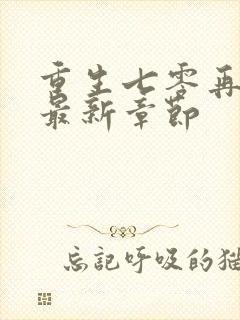 重生七零再
最新章节
忘记呼吸的猫